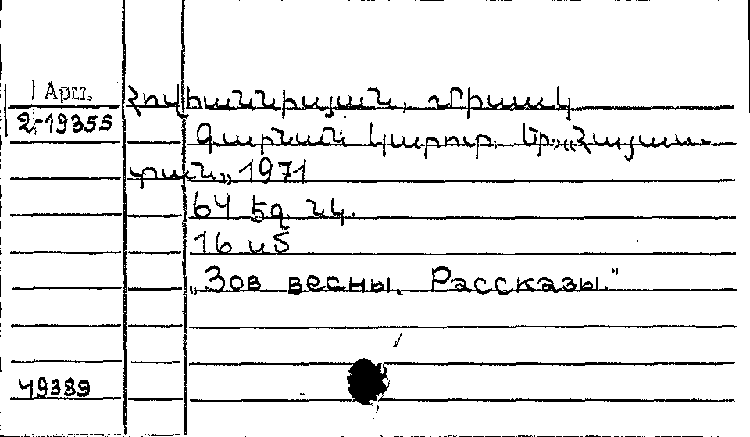 Арм.
2-19355
Հովհաննիսյան, Միսակ
Գարնան կարոտ. Եր., «Հայաս-
տան», 1971
64 էջ. նկ.
16 սմ
„Зов весны. Рассказы."
49389